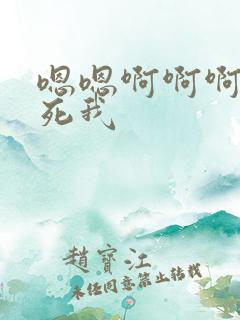 嗯嗯啊啊啊
死我
趙寶江
未经同意禁止转载